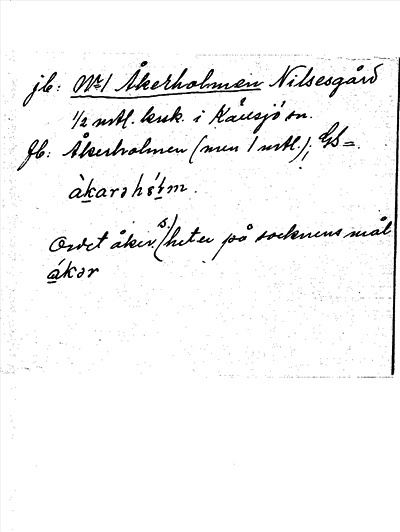 jb: No 1 Åkerholmen Nilsesgård
1/2 mtl. kruk. i Källsjö sn.
Jb: Åkerholmen (men 1 mtl.); GS=.
àkarəhɷ́łm.
Ordet åker, s.) heter på socknens mål
ákər